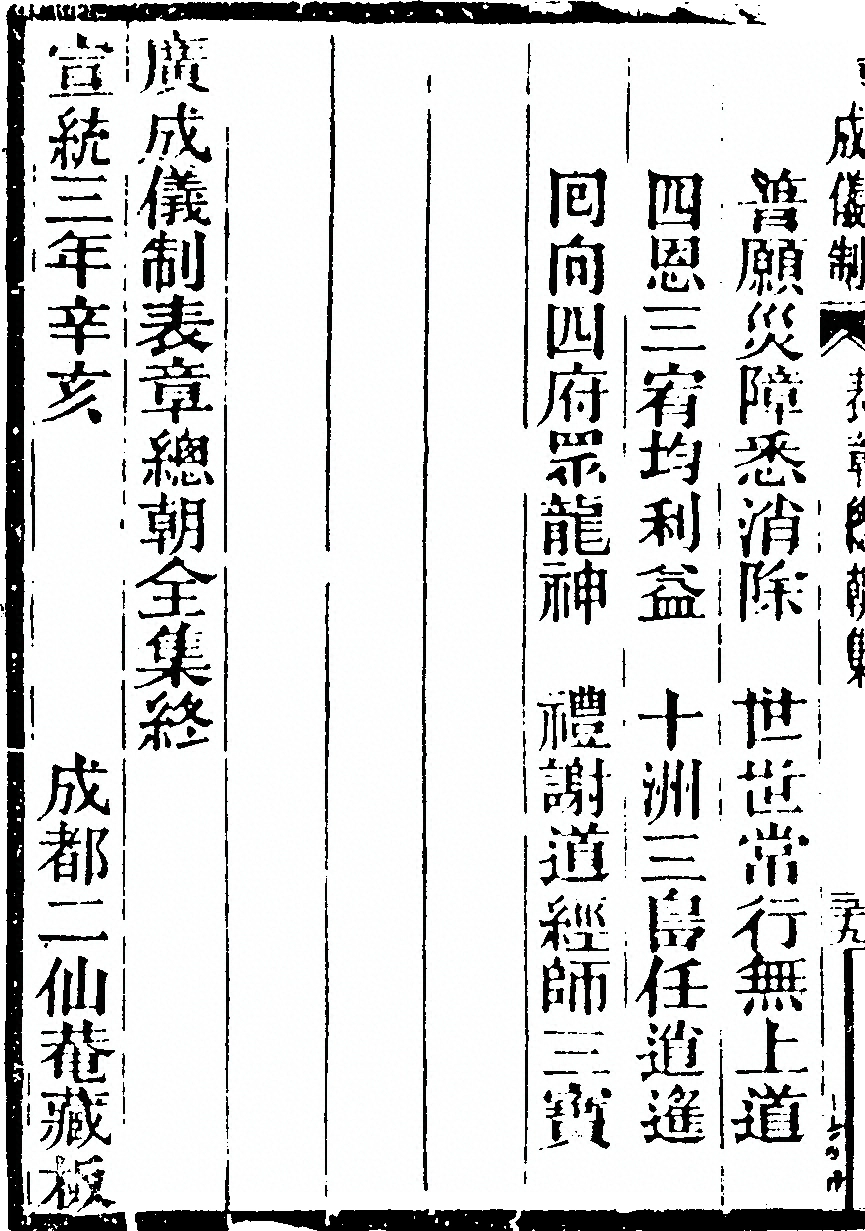 成儀制 表章總朝集 三十九
普願災障悉消除 世世常行無上道
四恩三宥均利益 十洲三島任逍遙
回向四府眾龍神 禮謝道經師三寶
廣成儀制表章總朝全集終
宣統三年辛亥 成都二仙菴藏板